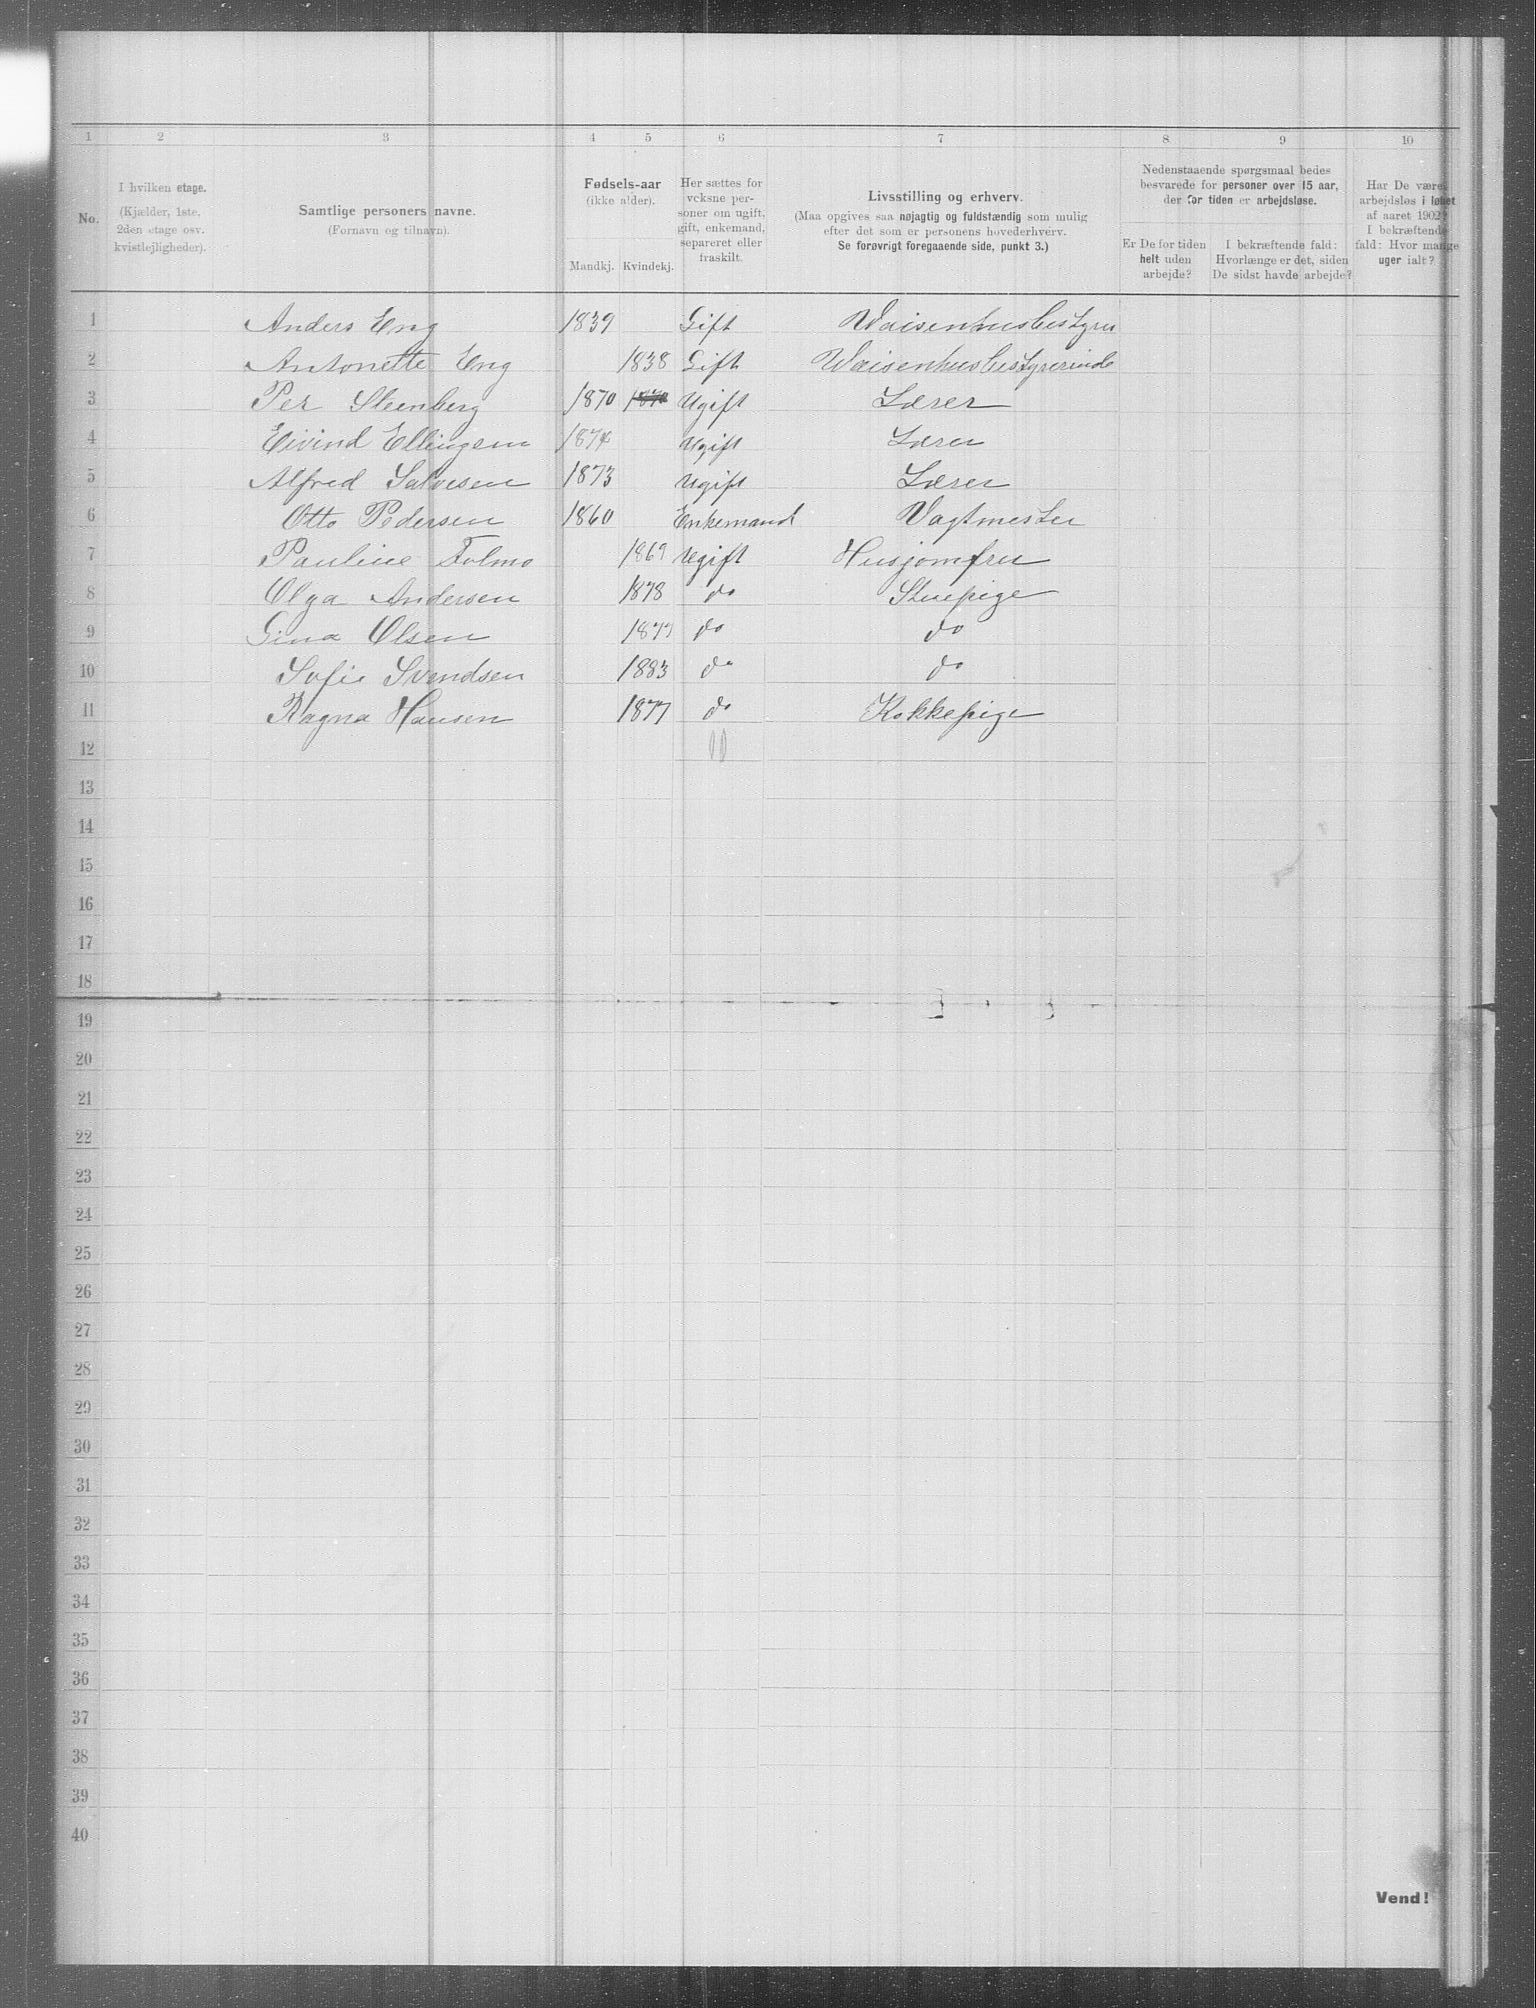 1 2 3 4 5 6 7 8 9 10
No.
I hvilken etage.
(Kjælder, 1ste,
2den etage osv.
kvistlejligheder).
Samtlige personers navne.
(Fornavn og tilnavn).
Fødsels-aar
(ikke alder).
Mandkj. Kvindekj.
Her sættes for
vcksne per-
soner om ugift,
gift, enkemand,
separeret eller
fraskilt.
Livsstilling og erhverv.
(Maa opgives saa nøjagtig og fuldstændig som mulig
efter det som er personens hovederhverv.
Se forøvrigt foregaaende side, punkt 3.)
Nedenstaaende spørgsmaal bedes
besvarede for personer over 15 aar,
der for tiden er arbejdsløse.
Er De for tiden
helt uden
arbejde?
I bekræftende fald:
Hvorlænge er det, siden
De sidst havde arbejde?
Har De været
arbejdsløs i løbet
af aaret 1902?
I bekræftende
fald: Hvor mange
uger ialt?
1 Anders Eng 1839 Gift Waisenhusbestyrer
2 Antonette Eng 1838 Gift Waisenhusbestyrerinde
3 Per Steenberg 1870 1870 Ugift Lærer
4 Eivind Ellingsen 1874 Ugift Lærer
5 Alfred Salvesen 1873 Ugift Lærer
6 Otto Pedersen 1860 Enkemand Vagtmester
7 Pauline Folmo 1869 Ugift Husjomfru
8 Olga Andersen 1878 do Stuepige
9 Gina Olsen 1877 do do
10 Sofie Svendsen 1883 do do
11 Ragna Hansen 1877 do Kokkepige
12
13
14
15
16
17
18
19
20
21
22
23
24
25
26
27
28
29
30
31
32
33
34
35
36
37
38
39
40
Vend!